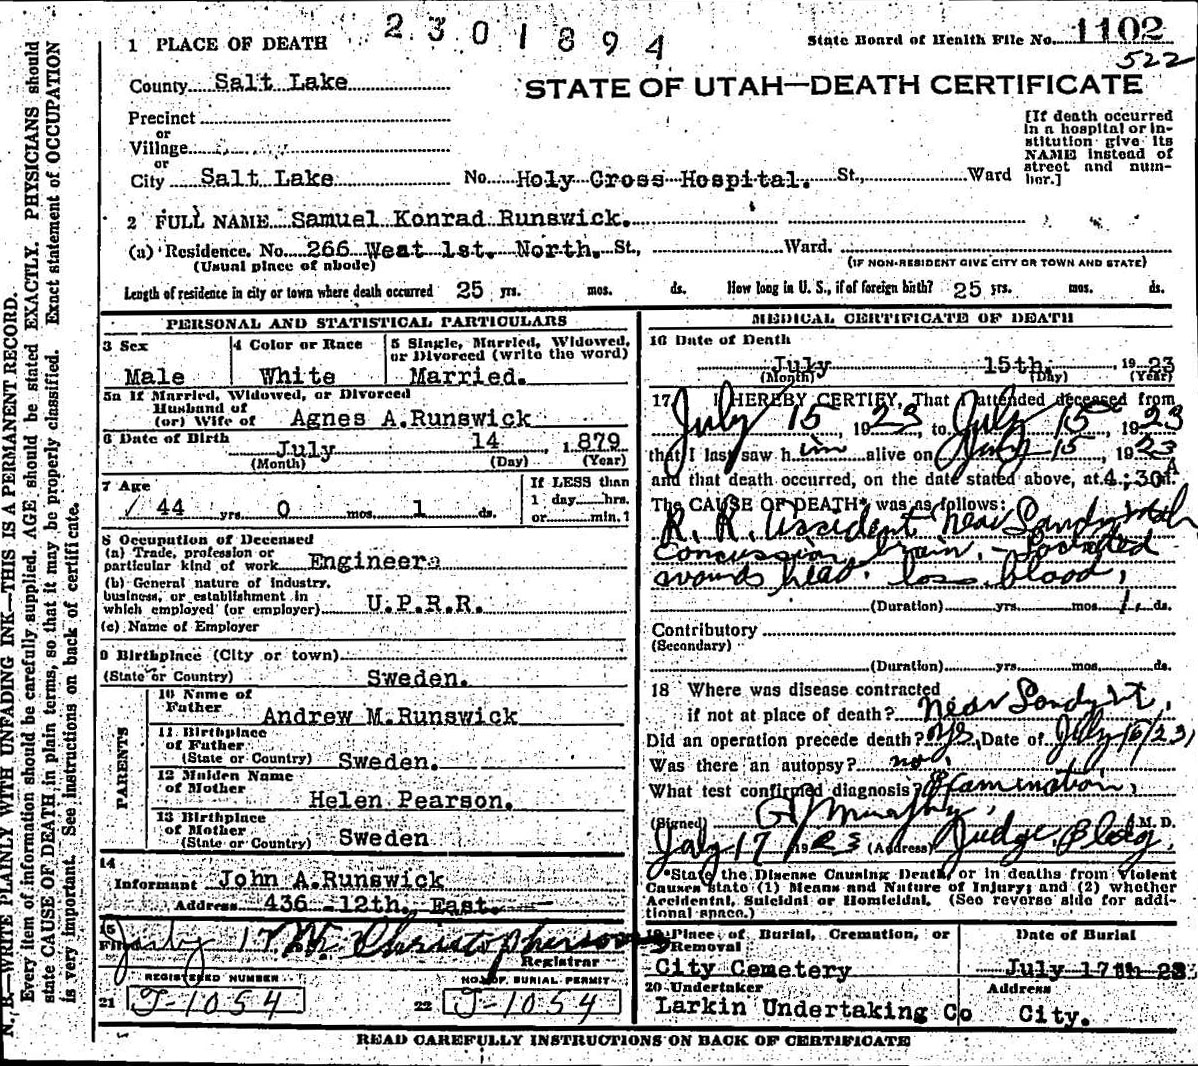 2301894
State Board of Health File No. 1102
522
1 PLACE OF DEATH
STATE OF UTAH—DEATH CERTIFICATE
County Salt Lake
Precinct
or
Village
or
City Salt Lake No. Holy Cross Hospital. St., Ward
[If death occurred
in a hospital or in-
stitution give its
NAME instead of
street and num-
ber.]
2 FULL NAME Samuel Konrad Runswick.
(a) Residence. No. 266 West 1st. North. St., Ward.
(Usual place of abode) (IF NON-RESIDENT GIVE CITY OR TOWN AND STATE)
Length of residence in city or town where death occurred 25 yrs. mos. ds. How long in U. S., if of foreign birth? 25 yrs. mos. ds.
PERSONAL AND STATISTICAL PARTICULARS
3 Sex
Male
4 Color or Race
White
5 Single, Married, Widowed,
or Divorced (write the word)
Married.
5a If Married, Widowed, or Divorced
Husband of
(or) Wife of Agnes A.Runswick
6 Date of Birth
July 14 1879
(Month) (Day) (Year)
7 Age
44 yrs. 0 mos. 1 ds.
If LESS than
1 day hrs.
or min.?
8 Occupation of Deceased
(a) Trade, profession or
particular kind of work Engineer
(b) General nature of industry,
business, or establishment in
which employed (or employer) U.P.R.R.
(c) Name of Employer
9 Birthplace (City or town)
(State or Country) Sweden.
PARENTS
10 Name of
Father Andrew M.Runswick
11 Birthplace
of Father
(State or Country) Sweden.
12 Maiden Name
of Mother Helen Pearson.
13 Birthplace
of Mother
(State or Country) Sweden
14
Informant John A.Runswick
Address 436 -12th. East.
15
Filed July 17 Christopherson
Registrar
REGISTERED NUMBER NO. OF BURIAL PERMIT
21 J-1054 22 J-1054
MEDICAL CERTIFICATE OF DEATH
16 Date of Death
July 15th. 1923
(Month) (Day) (Year)
17 I HEREBY CERTIFY, That I attended deceased from
July 15, 1923, to July 15, 1923
that I last saw him alive on July 15, 1923
and that death occurred, on the date stated above, at 4:30 A m.
The CAUSE OF DEATH* was as follows:
R. R. accident near Sandy Utah
Concussion brain. - Lacerated
wounds head. loss blood,
(Duration) yrs. mos. 1 ds.
Contributory
(Secondary)
(Duration) yrs. mos. ds.
18 Where was disease contracted
if not at place of death? near Sandy Ut.
Did an operation precede death? yes, Date of July 15/23,
Was there an autopsy? no,
What test confirmed diagnosis? Examination,
(Signed) M. D.
July 17 1923 (Address) Judge Bldg.
*State the Disease Causing Death, or in deaths from Violent
Causes state (1) Means and Nature of Injury; and (2) whether
Accidental, Suicidal or Homicidal. (See reverse side for addi-
tional space.)
19 Place of Burial, Cremation, or
Removal
City Cemetery
Date of Burial
July 17th 23
20 Undertaker
Larkin Undertaking Co
Address
City.
READ CAREFULLY INSTRUCTIONS ON BACK OF CERTIFICATE
N. B.—WRITE PLAINLY WITH UNFADING INK—THIS IS A PERMANENT RECORD.
Every item of information should be carefully supplied. AGE should be stated EXACTLY. PHYSICIANS should
state CAUSE OF DEATH in plain terms, so that it may be properly classified. Exact statement of OCCUPATION
is very important. See instructions on back of certificate.